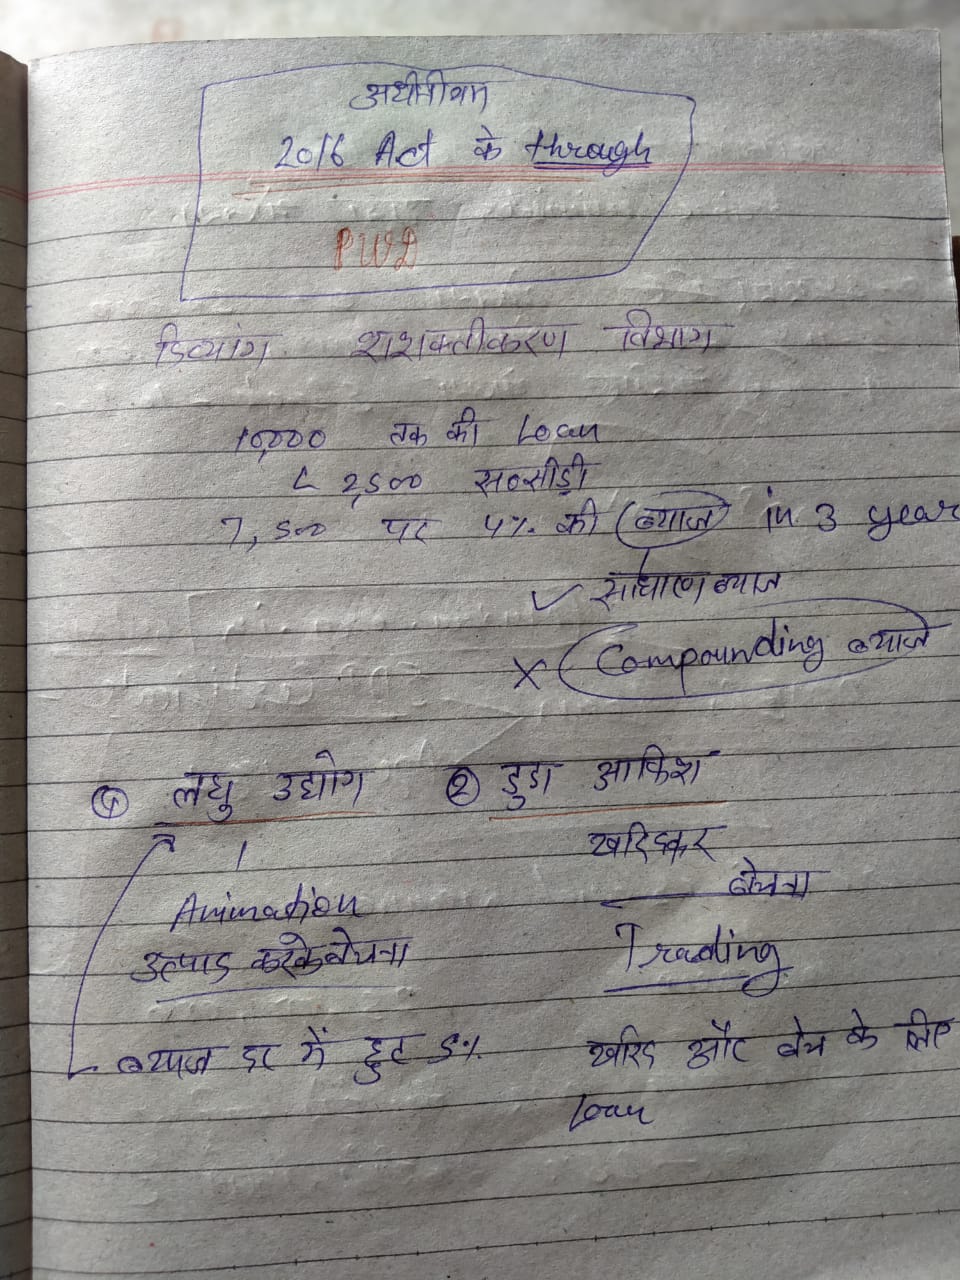 अधीनीयम
2016 Act के through
PWD
दिव्यांग शशक्तीकरण विभाग
10,000 तक की Loan
2,500 सब्सीडी
7,500 पर 4% की ब्याज in 3 year
✓ साधारण ब्याज
× Compounding ब्याज
① लघु उद्योग ② डुडा आफिश
खरिदकर
Animation बेचना
उत्पाद करके बेचना Trading
ब्याज दर में छुट 5% खरिद और बेच के लिए
Loan